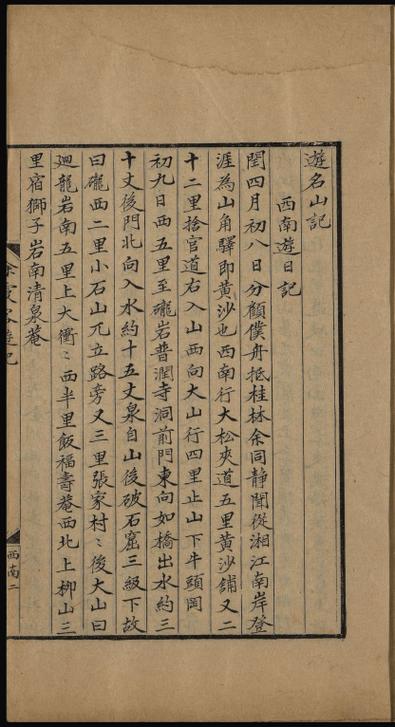 遊名山記
西南遊日記
閏四月初八日分顧僕舟抵桂林余同靜聞從湘江南岸登
涯為山角驛即黃沙也西南行大松夾道五里黃沙舖又二
十二里捨官道右入山西向大山行四里止山下牛頭岡
初九日西五里至礲岩普潤寺洞前門東向如橋出水約三
十丈後門北向入水約十五丈泉自山後破石窟三級下故
曰礲西二里小石山兀立路旁又三里張家村〻後大山曰
廻龍岩南五里上大衢〻西半里飯福壽菴西北上柳山三
里宿獅子岩南清泉菴
西南二